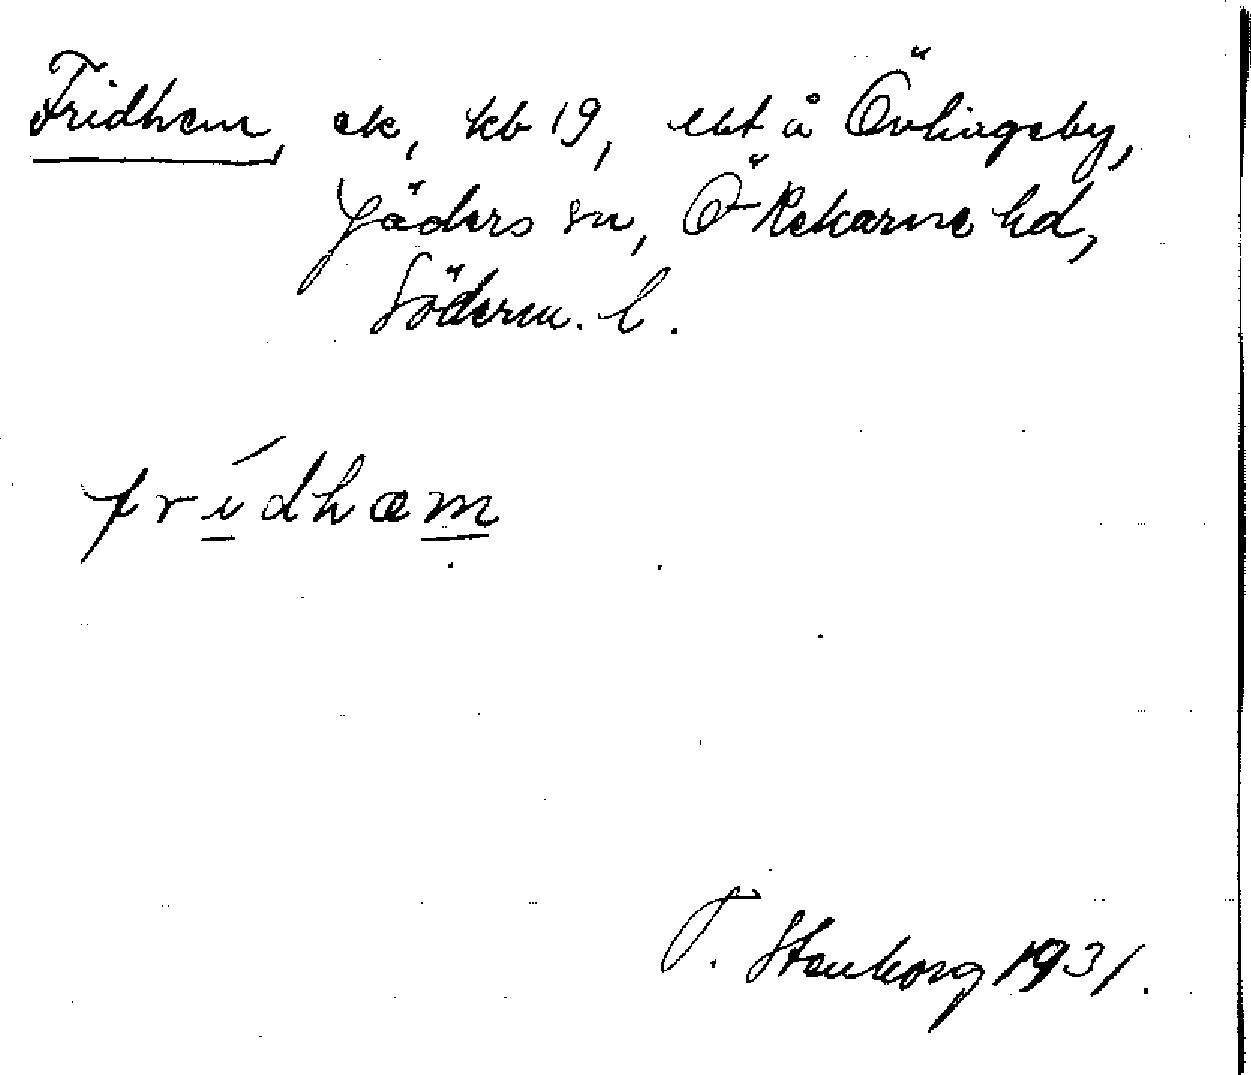 Fridhem, ek, kb 19, ekt å Övhagsby,
Jäders sn, Ö Rekarne hd,
Söderm. l.
frídhæm
T. Stenborg 1931.